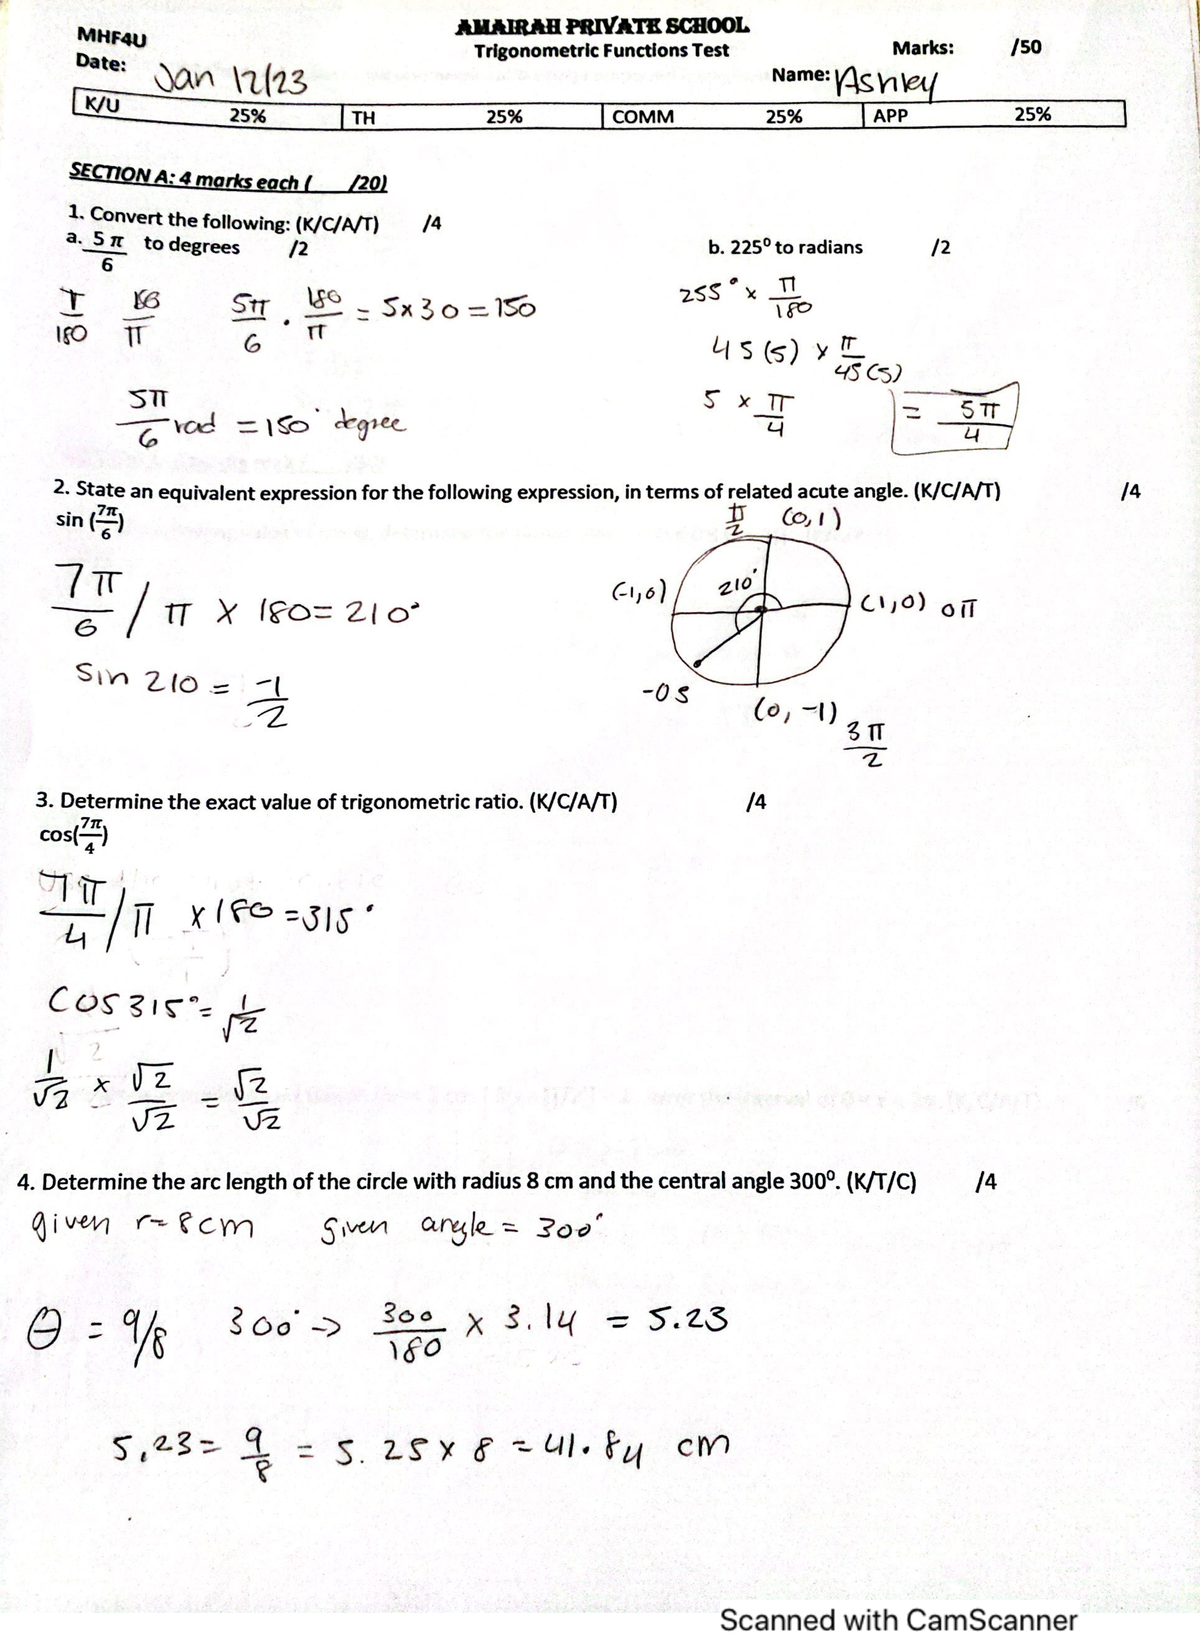 AMAIRAH PRIVATE SCHOOL
MHF4U Trigonometric Functions Test Marks: /50
Date: Jan 12/23 Name: Ashley
K/U 25% TH 25% COMM 25% APP 25%
SECTION A: 4 marks each ( /20)
1. Convert the following: (K/C/A/T) /4
a. 5π/6 to degrees /2
π/180 180/π 5π/6 · 180/π = 5x30 = 150
5π/6 rad = 150° degree
b. 225⁰ to radians /2
255° x π/180
45(5) x π/45(5)
5 x π/4 = 5π/4
2. State an equivalent expression for the following expression, in terms of related acute angle. (K/C/A/T) /4
sin (7π/6)
7π/6 / π x 180 = 210°
Sin 210 = -1/2
π/2 (0,1)
(-1,0) 210° (1,0) 0π
-05 (0,-1) 3π/2
3. Determine the exact value of trigonometric ratio. (K/C/A/T) /4
cos(7π/4)
7π/4 / π x 180 = 315°
COS 315° = 1/√2
1/√2 x √2/√2 = √2/√2
4. Determine the arc length of the circle with radius 8 cm and the central angle 300⁰. (K/T/C) /4
given r = 8cm given angle = 300°
θ = 9/8 300° -> 300/180 x 3.14 = 5.23
5.23 = 9/8 = 5.25 x 8 = 41.84 cm
Scanned with CamScanner